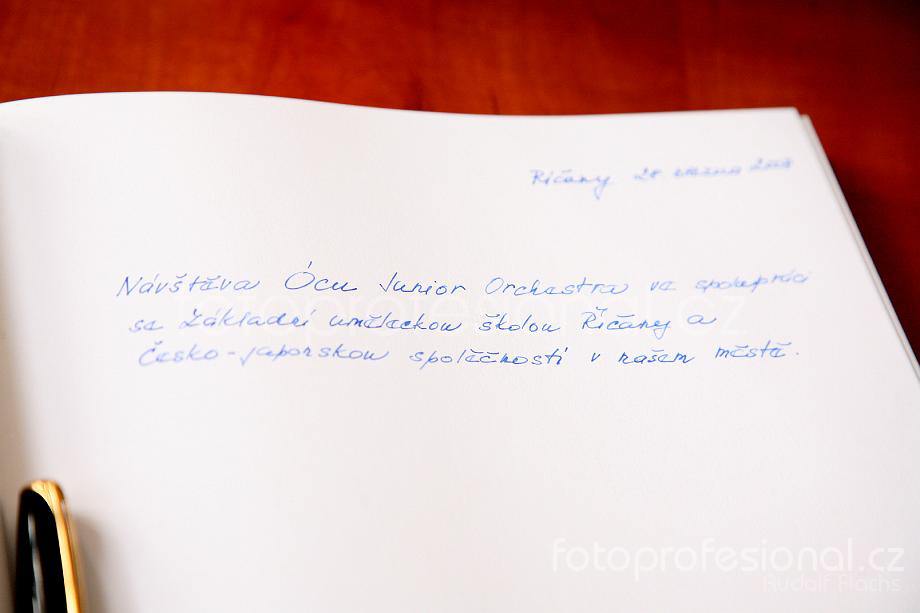 Říčany 28 března
Návštěva Ócu Junior Orchestra ve spolupráci
se Základní uměleckou školou Říčany a
Česko-japonskou společností v našem městě.
fotoprofesional.cz
fotoprofesional.cz
Rudolf Flachs